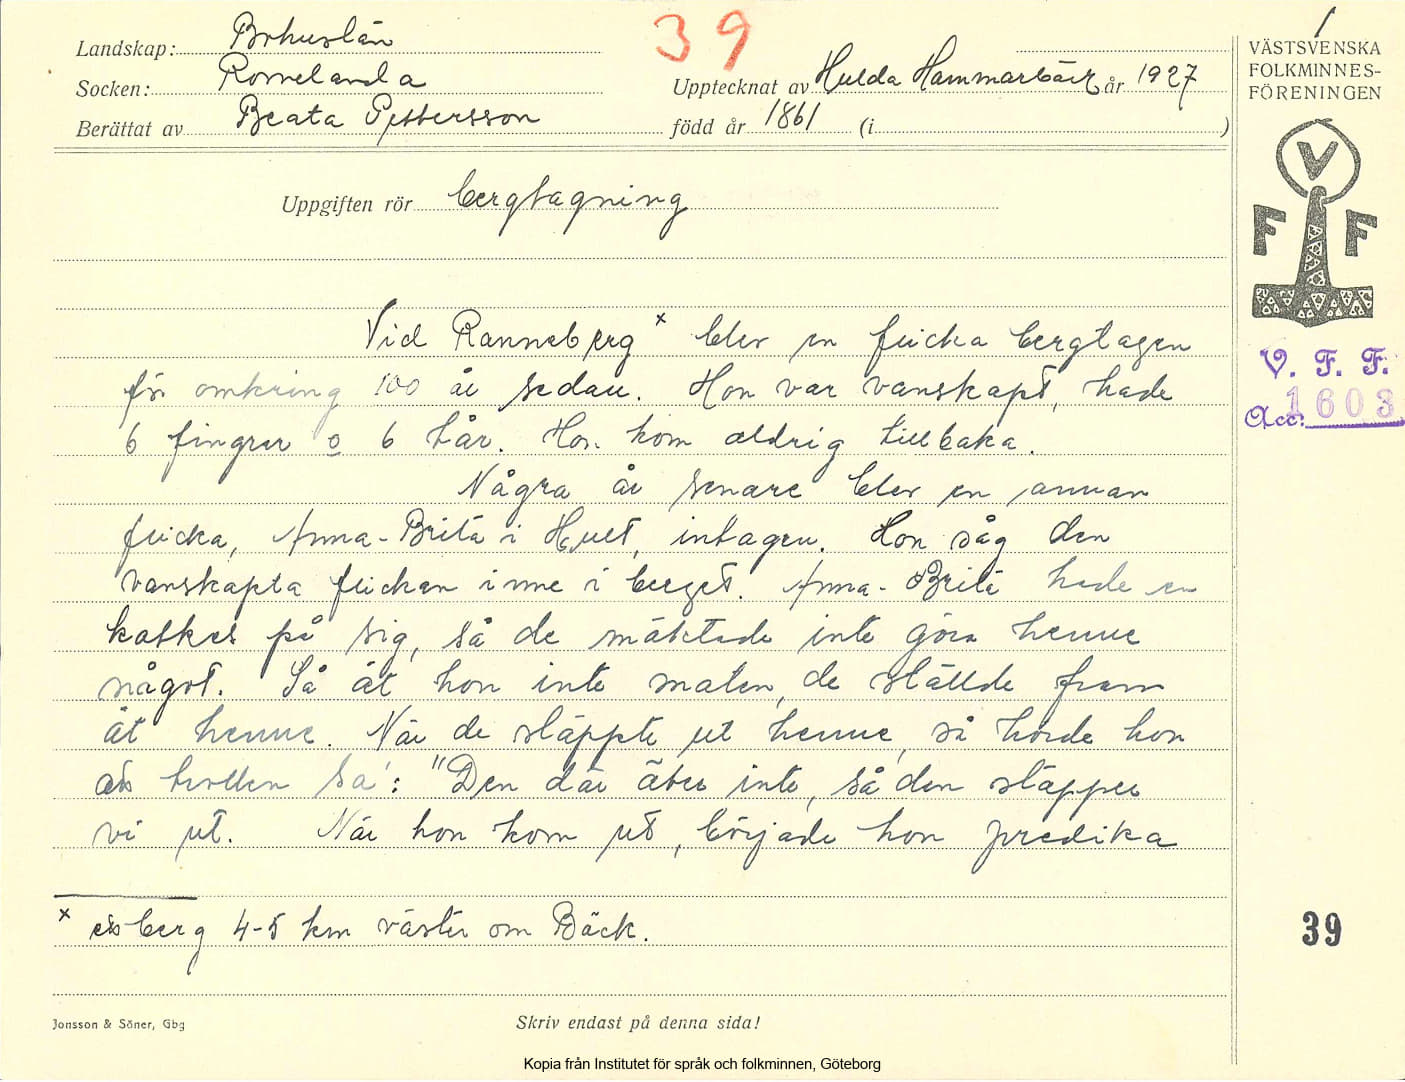 39
Landskap: Bohuslän
Socken: Romelanda
Upptecknat av Hulda Hammarbäck år 1927
Berättat av Beata Pettersson född år 1861 (i )
Uppgiften rör bergtagning
Vid Ranneberg x blev en flicka bergtagen
för omkring 100 år sedan. Hon var vanskapt, hade
6 fingrar o 6 tår. Hon kom aldrig tillbaka.
Några år senare blev en annan
flicka, Anna-Brita i Hult, intagen. Hon såg den
vanskapta flickan inne i berget. Anna-Brita hade en
på sig, så de mäktade inte göra henne
något. Så åt hon inte maten, de ställde fram
åt henne. När de släppte ut henne, så hörde hon
trollen sa': "Den där äter inte, så den släpper
vi ut. När hon kom ut, började hon predika
x berg 4-5 km väster om Bäck.
Jonsson & Söner, Gbg
Skriv endast på denna sida!
Kopia från Institutet för språk och folkminnen, Göteborg
VÄSTSVENSKA
FOLKMINNES-
FÖRENINGEN
V
F F
V. F. F.
Acc: 1603
39